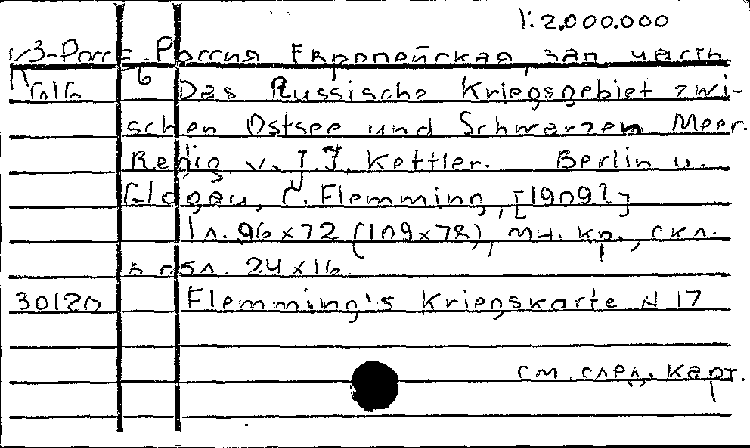 1: 2.000.000
Россия Европейская, зап. часть
Das Russische Kriegsgebiet zwi-
schen Ostsee und Schwarzem Meer.
Redig v. J. J. Kettler. Berlin u.
Glogau, C. Flemming, [1909?]
1 л. 96 x 72 (109 x 78), мн. кр., скл.
в обл. 24 x 16.
30120 Flemming's Kriegskarte N 17
см. след. карт.